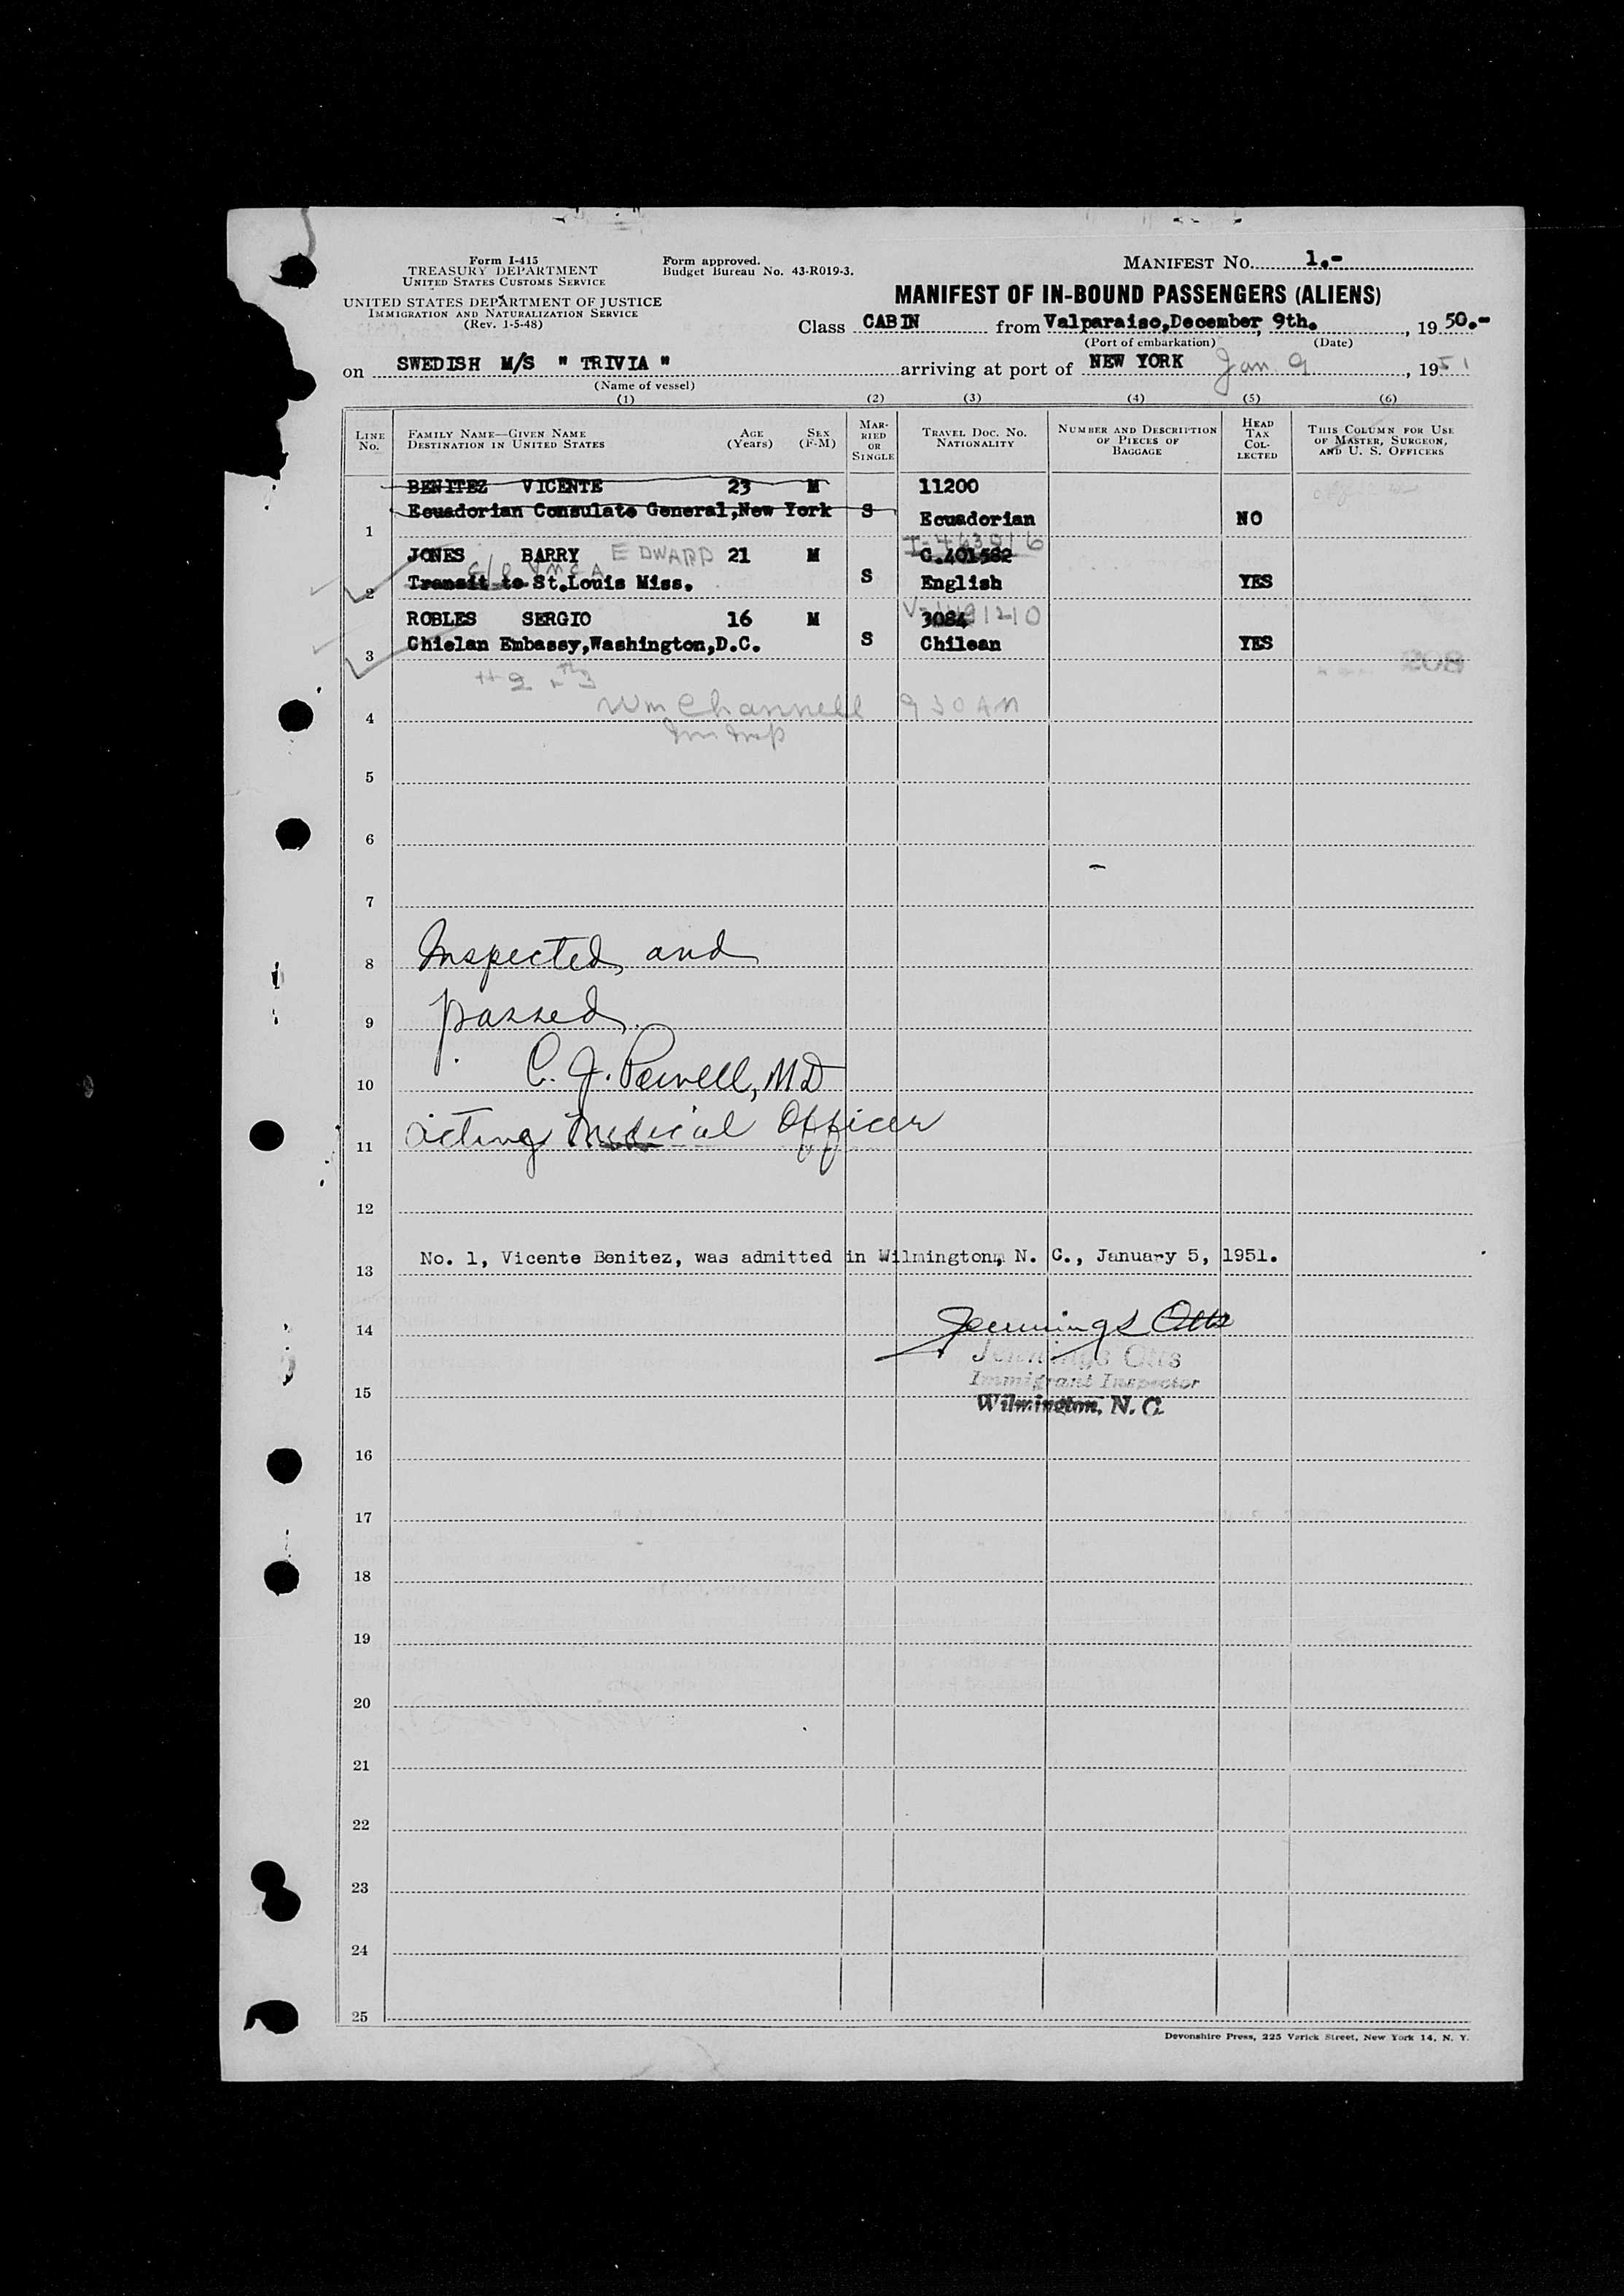 Form I-415
TREASURY DEPARTMENT
UNITED STATES CUSTOMS SERVICE
UNITED STATES DEPARTMENT OF JUSTICE
IMMIGRATION AND NATURALIZATION SERVICE
(Rev. 1-5-48)
Form approved.
Budget Bureau No. 43-R019-3.
MANIFEST NO. 1.-
MANIFEST OF IN-BOUND PASSENGERS (ALIENS)
Class CABIN from Valparaiso, December, 9th. , 19 50.-
(Port of embarkation) (Date)
on SWEDISH M/S " TRIVIA " arriving at port of NEW YORK Jan. 9 , 1951
(Name of vessel)
(1) (2) (3) (4) (5) (6)
LINE No. FAMILY NAME—GIVEN NAME DESTINATION IN UNITED STATES AGE (Years) SEX (F-M) MARRIED OR SINGLE TRAVEL DOC. NO. NATIONALITY NUMBER AND DESCRIPTION OF PIECES OF BAGGAGE HEAD TAX COLLECTED THIS COLUMN FOR USE OF MASTER, SURGEON, AND U. S. OFFICERS
BENITEZ VICENTE 23 M 11200
1 Ecuadorian Consulate General,New York S Ecuadorian NO
I-463016
JONES BARRY EDWARD 21 M C.401582
c/o YMCA
2 Transit to St.Louis Miss. S English YES
ROBLES SERGIO 16 M 3084
3 Chielan Embassy,Washington,D.C. S Chilean YES
208
Wm Channell 930 AM
4
Im Insp
5
6
7
8 Inspected and
9 passed.
10 C. J. Powell, MD
11 Acting Medical Officer
12
13 No. 1, Vicente Benitez, was admitted in Wilmington, N. C., January 5, 1951.
14 Jennings Otts
Jennings Otts
Immigrant Inspector
15
Wilmington, N. C.
16
17
18
19
20
21
22
23
24
25
Devonshire Press, 225 Varick Street, New York 14, N. Y.